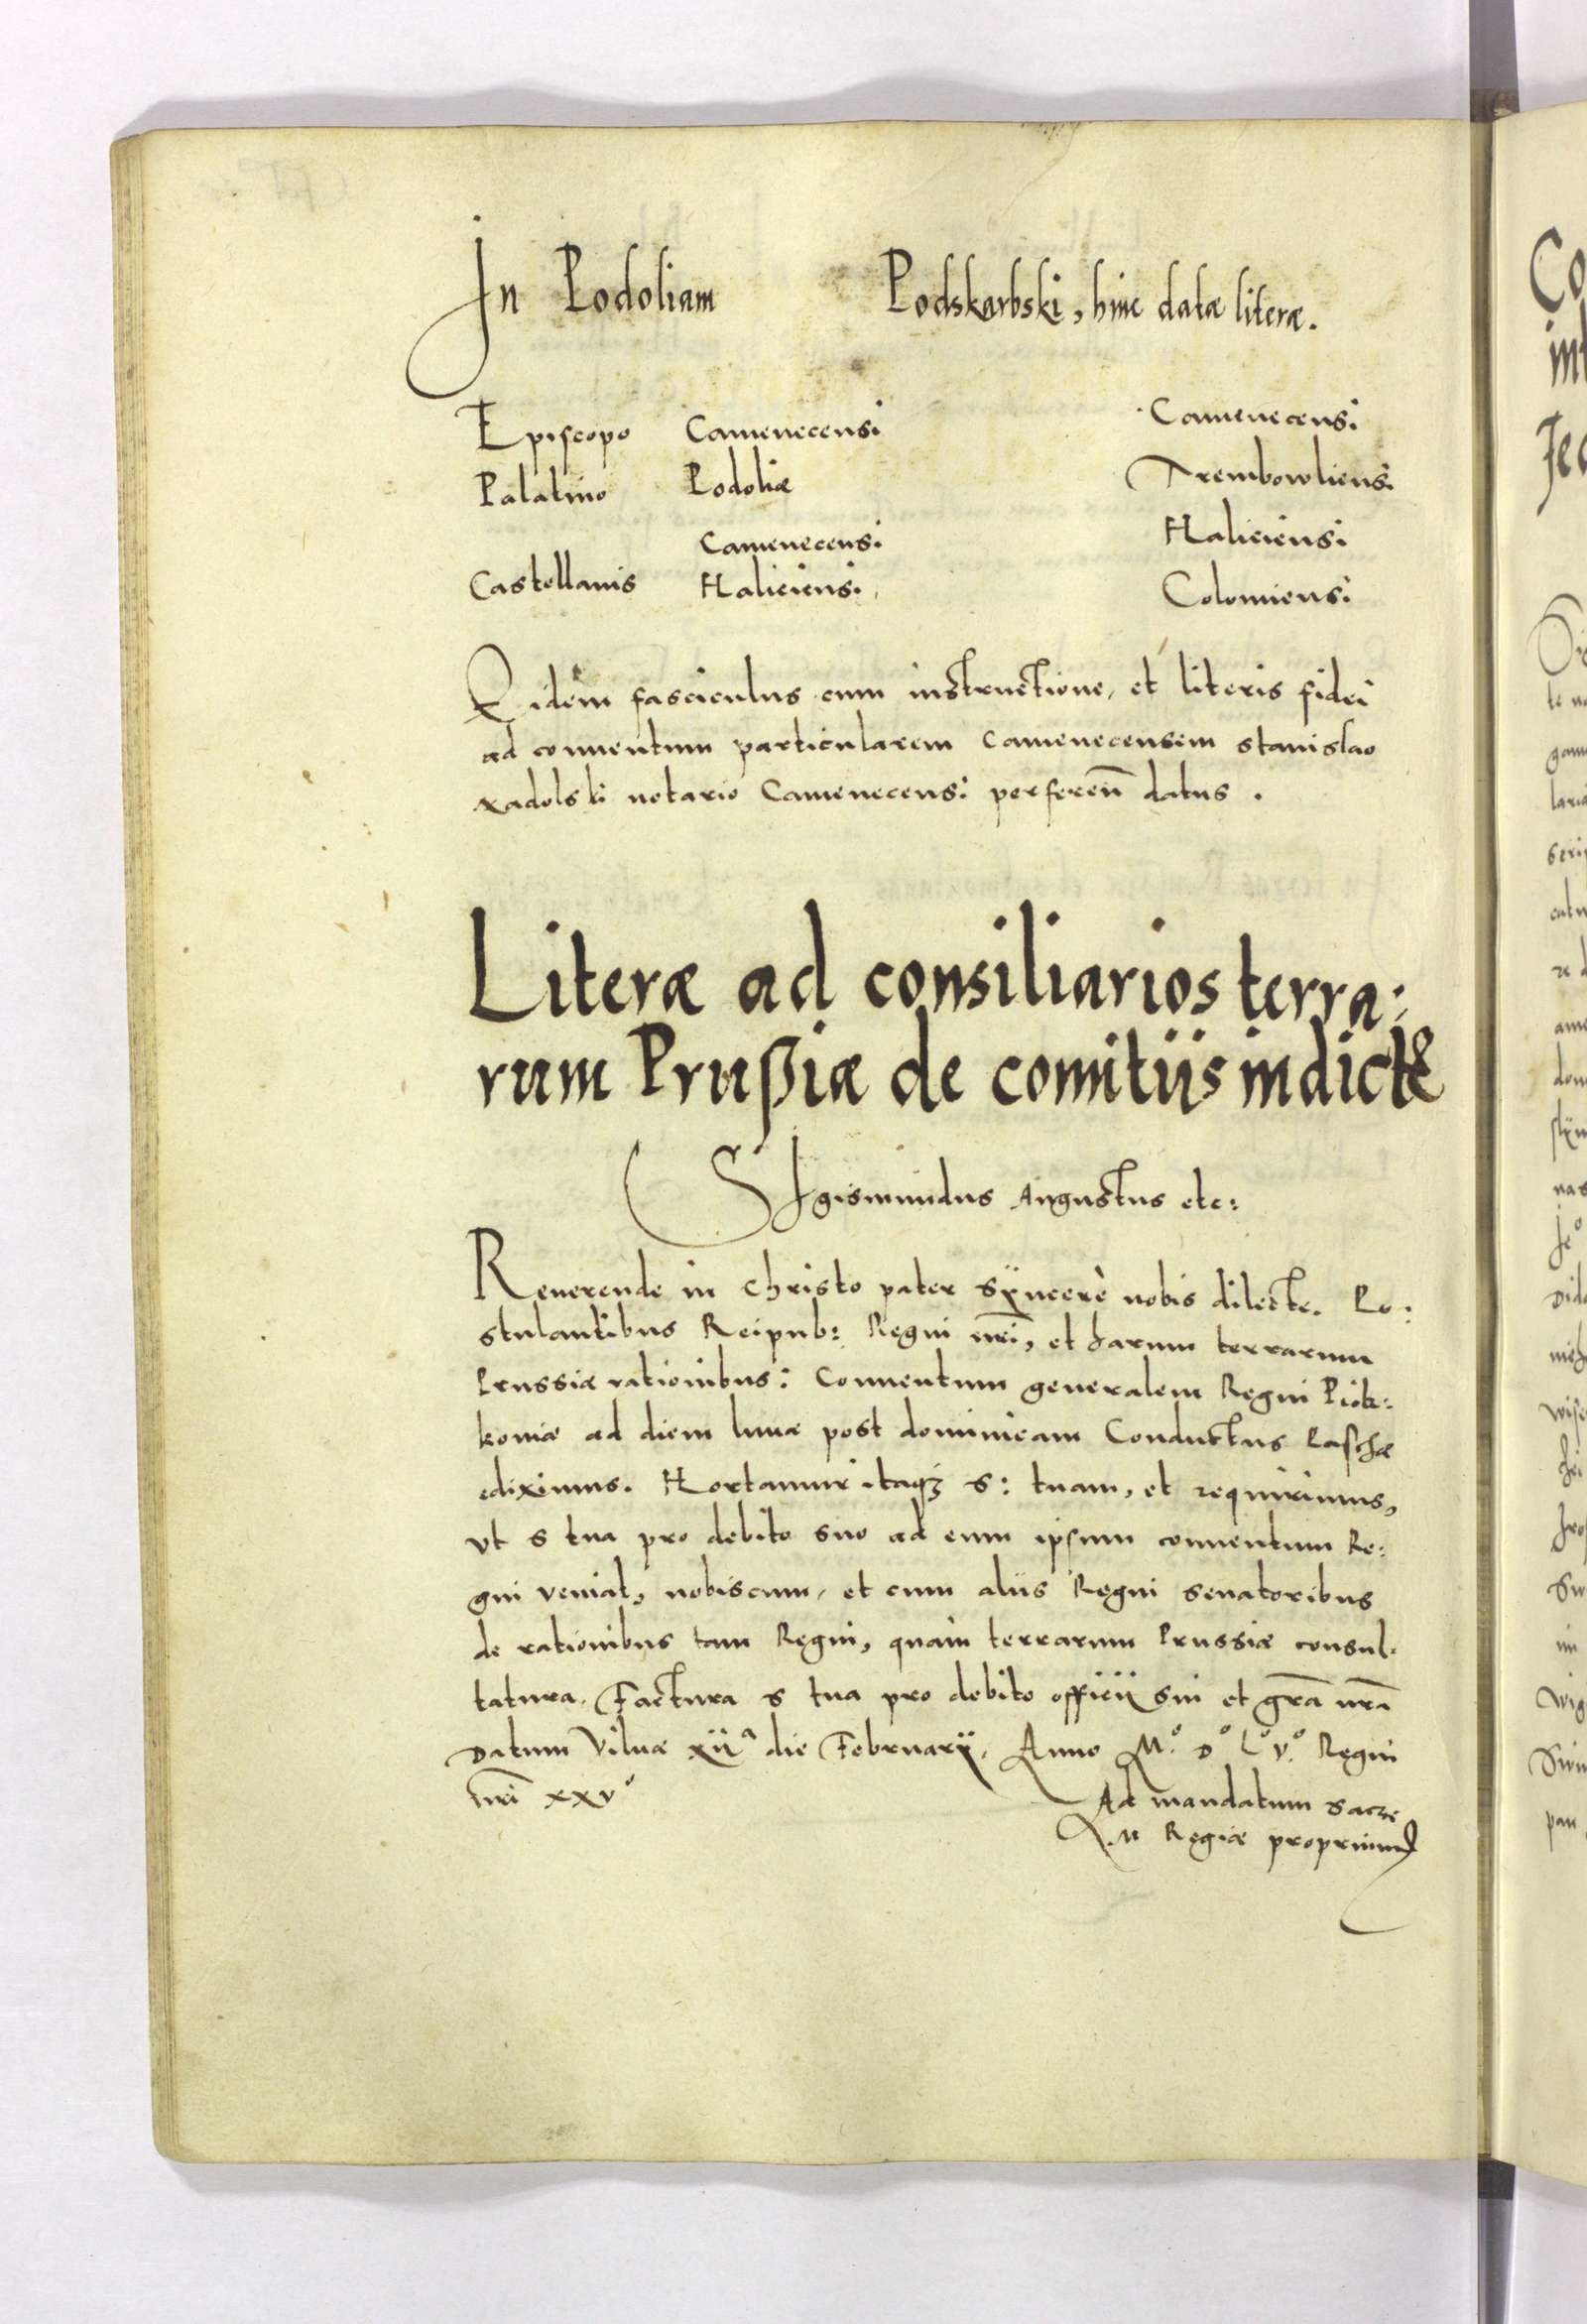 In Podoliam Podskarbski, hinc datæ literæ.
Episcopo Camenecensi Camenecensi
Palatino Podoliæ Trembowliensi
Camenecensi Haliciensi
Castellanis Haliciensi, Colomiensi
Eidem fasciculus cum instructione, et literis fidei
ad conuentum particularem Camenecensem Stanislao
xadolski notario Camenecensi perferen̄ datus .
Literæ ad consiliarios terra:
rum Prußiæ de comitiis indict
Sigismundus Augustus etc:
Reuerende in Christo pater sÿncerè nobis dilecte. Po:
stulantibus Reipub: Regni nrī, et harum terrarum
Prussiæ rationibus: Conuentum generalem Regni Piotr:
kouiæ ad diem lunæ post dominicam Conductus Paschæ
ediximus. Hortamur itaqꝫ S: tuam, et requirimus,
vt S tua pro debito suo ad eum ipsum conuentum Re:
gni veniat, nobiscum, et cum aliis Regni senatoribus
de rationibus tam Regni, quàm terrarum Prussiæ consul.
tatura. Factura S tua pro debito officii sui et grā nrā
Datum Vilnæ xii^a die Februarÿ. Anno M.° D° L° v.° Regni
nrī xxv°
Ad mandatum sacre
M Regiæ proprium